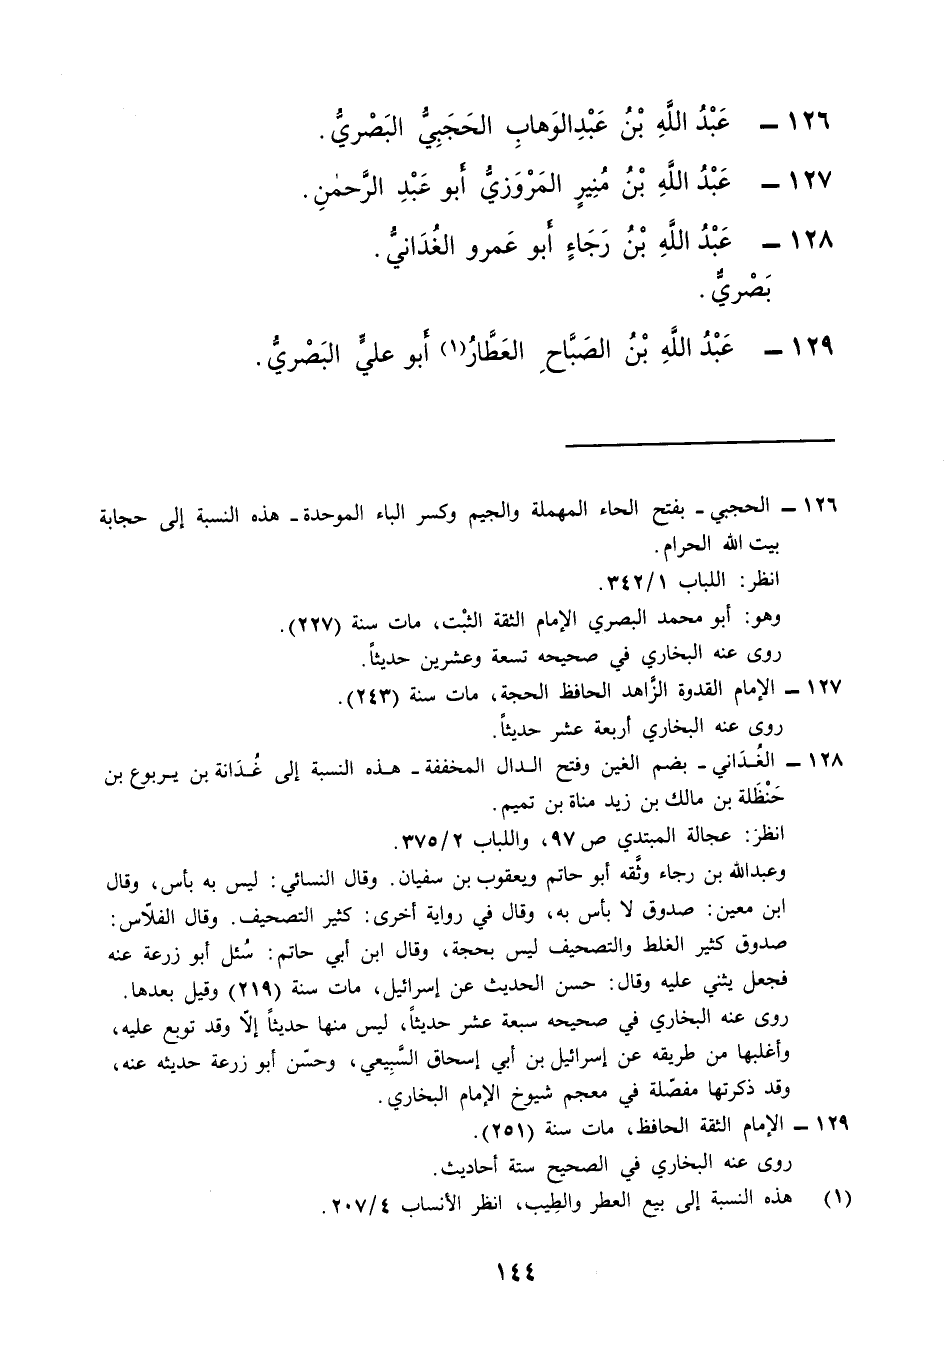 ١٢٦ ــ عَبْدُ اللَّهِ بْنُ عَبْدِالوَهابِ الحَجَبِيُّ البَصْريُّ.
١٢٧ ــ عَبْدُ اللَّهِ بْنُ مُنِيرٍ المَرْوَزيُّ أَبو عَبْدِ الرَّحمٰنِ.
١٢٨ ــ عَبْدُ اللَّهِ بْنُ رَجَاءٍ أَبو عَمرو الغُدَانيُّ.
بَصْريٌّ.
١٢٩ ــ عَبْدُ اللَّهِ بْنُ الصَبَّاحِ العَطَّارُ(١) أَبو عليٍّ البَصْريُّ.
١٢٦ ــ الحجبي ـ بفتح الحاء المهملة والجيم وكسر الباء الموحدة ـ هذه النسبة إلى حجابة
بيت الله الحرام.
انظر: اللباب ٣٤٢/١.
وهو: أبو محمد البصري الإمام الثقة الثبْت، مات سنة (٢٢٧).
روى عنه البخاري في صحيحه تسعة وعشرين حديثاً.
١٢٧ ــ الإمام القدوة الزَّاهد الحافظ الحجة، مات سنة (٢٤٣).
روى عنه البخاري أربعة عشر حديثاً.
١٢٨ ــ الغُدَاني ـ بضم الغين وفتح الدال المخففة ـ هذه النسبة إلى غُدَانة بن يربوع بن
حَنْظَلة بن مالك بن زيد مناة بن تميم.
انظر: عجالة المبتدي ص ٩٧، واللباب ٣٧٥/٢.
وعبدالله بن رجاء وثَّقه أبو حاتم ويعقوب بن سفيان. وقال النسائي: ليس به بأس، وقال
ابن معين: صدوق لا بأس به، وقال في رواية أخرى: كثير التصحيف. وقال الفلّاس:
صدوق كثير الغلط والتصحيف ليس بحجة، وقال ابن أبي حاتم: سُئل أبو زرعة عنه
فجعل يثني عليه وقال: حسن الحديث عن إسرائيل، مات سنة (٢١٩) وقيل بعدها.
روى عنه البخاري في صحيحه سبعة عشر حديثاً، ليس منها حديثاً إلّا وقد توبع عليه،
وأغلبها من طريقه عن إسرائيل بن أبي إسحاق السَّبِيعي، وحسّن أبو زرعة حديثه عنه،
وقد ذكرتها مفصّلة في معجم شيوخ الإمام البخاري.
١٢٩ ــ الإمام الثقة الحافظ، مات سنة (٢٥١).
روى عنه البخاري في الصحيح ستة أحاديث.
(١) هذه النسبة إلى بيع العطر والطِيب، انظر الأنساب ٢٠٧/٤.
١٤٤